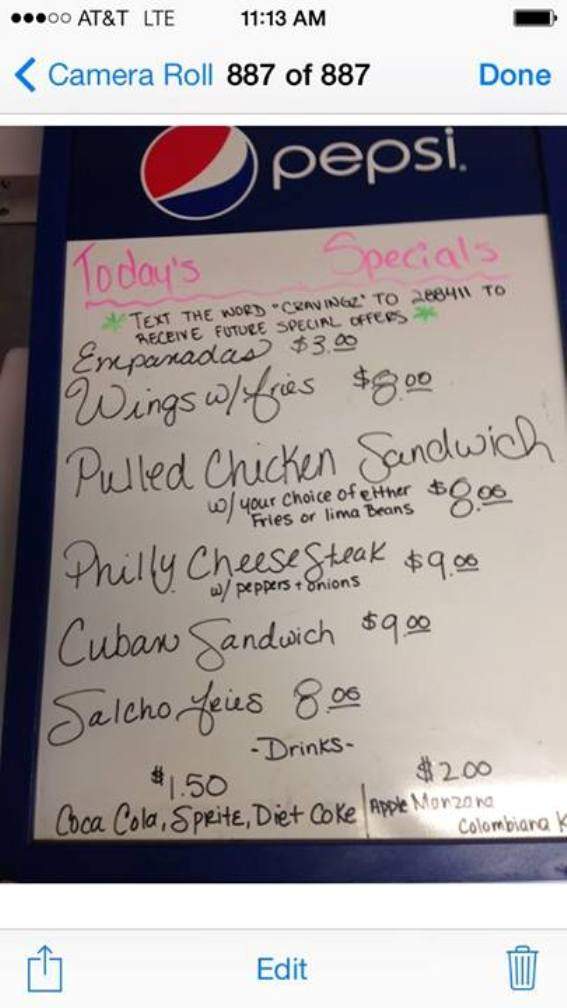 AT&T LTE 11:13 AM
Camera Roll 887 of 887 Done
pepsi.
Today's Specials
TEXT THE WORD "CRAVINGZ" TO 288411 TO
RECEIVE FUTURE SPECIAL OFFERS
Empanadas $3.00
Wings w/fries $8.00
Pulled Chicken Sandwich
w/ your choice of either $8.00
Fries or lima Beans
Philly CheeseSteak $9.00
w/ peppers + onions
Cuban Sandwich $9.00
Salcho fries 8.00
-Drinks-
$1.50 $2.00
Coca Cola, Sprite, Diet Coke | Apple Manzana
Colombiana K
Edit